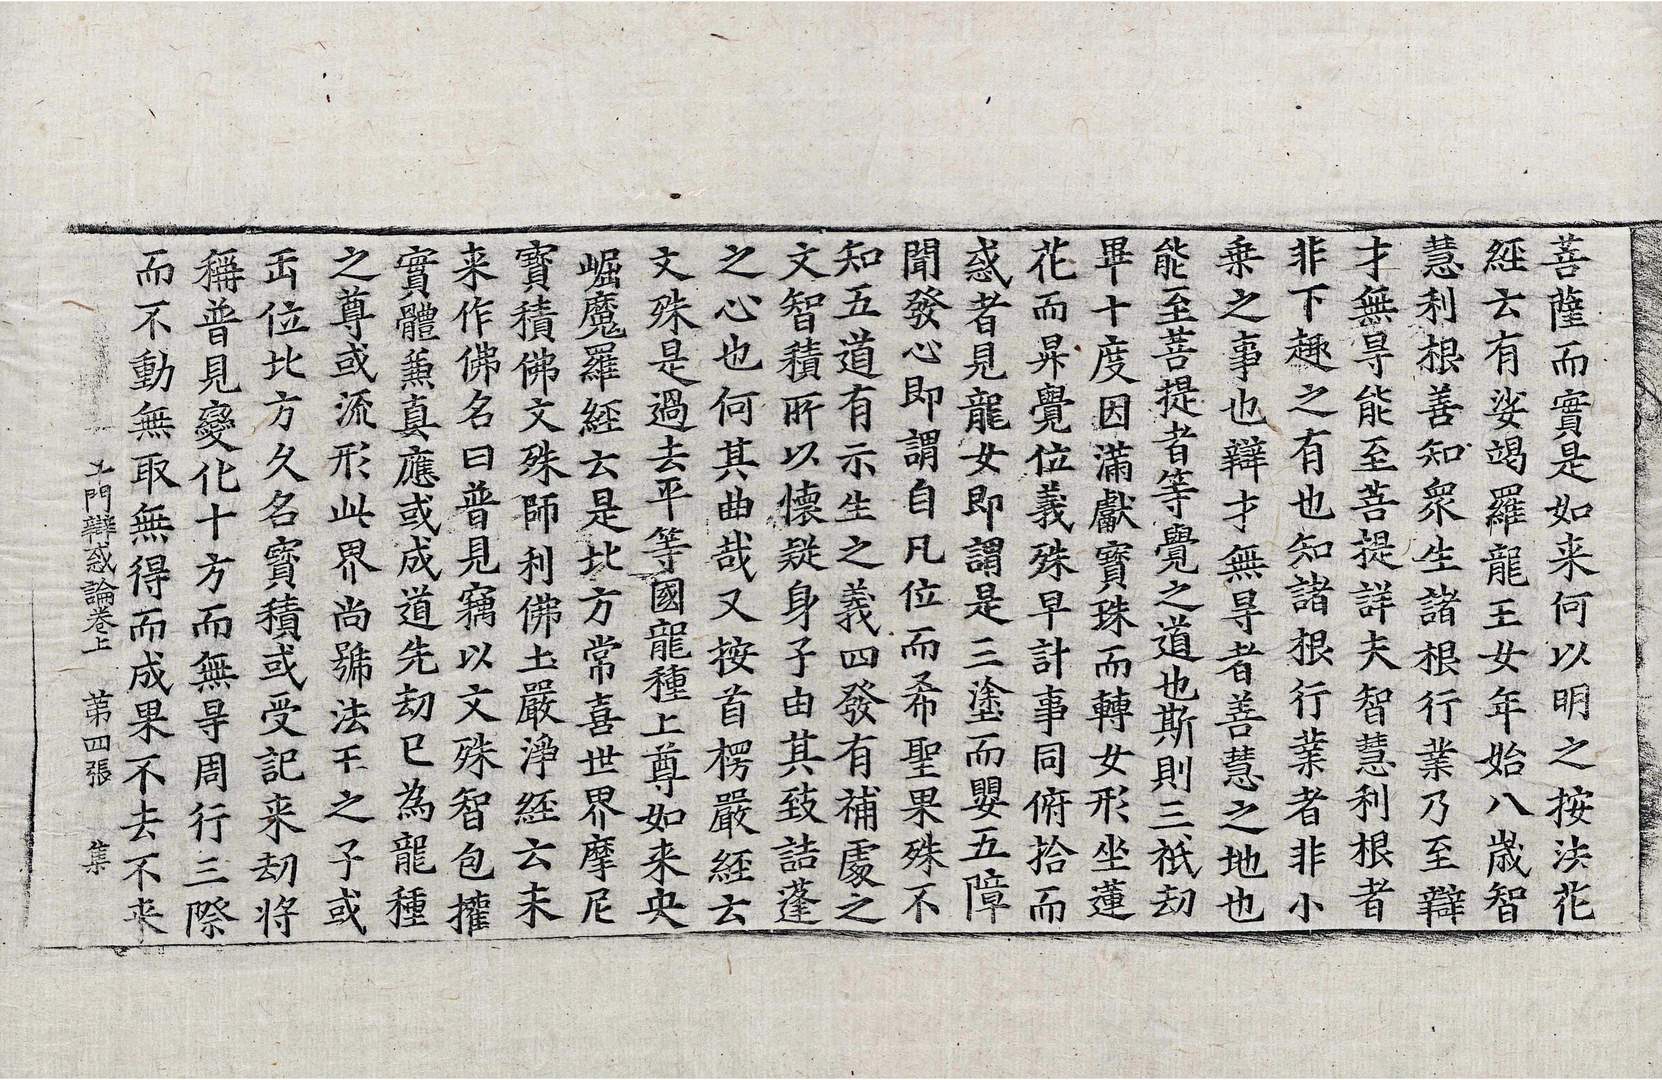 菩薩而實是如来何以明之按法花
經云有娑竭羅龍王女年始八歲智
慧利根善知衆生諸根行業乃至辯
才無㝵能至菩提詳夫智慧利根者
非下趣之有也知諸根行業者非小
乗之事也辯才無㝵者善慧之地也
能至菩提者等覺之道也斯則三祇劫
畢十度因滿獻寳珠而轉女形坐蓮
花而昇覺位義殊早計事同俯拾而
惑者見龍女即謂是三塗而嬰五障
聞發心即謂自凡位而希聖果殊不
知五道有示生之義四發有補處之
文智積所以懷疑身子由其致詰蓬
之心也何其曲哉又按首楞嚴經云
文殊是過去平等國龍種上尊如来央
崛魔羅經云是北方常喜世界摩尼
寳積佛文殊師利佛土嚴淨經云未
来作佛名曰普見竊以文殊智包權
實體兼真應或成道先劫已為龍種
之尊或流形此界尚號法王之子或
正位北方久名寳積或受記来劫将
稱普見變化十方而無㝵周行三際
而不動無取無得而成果不去不来
十門辯惑論卷上　第四張　集